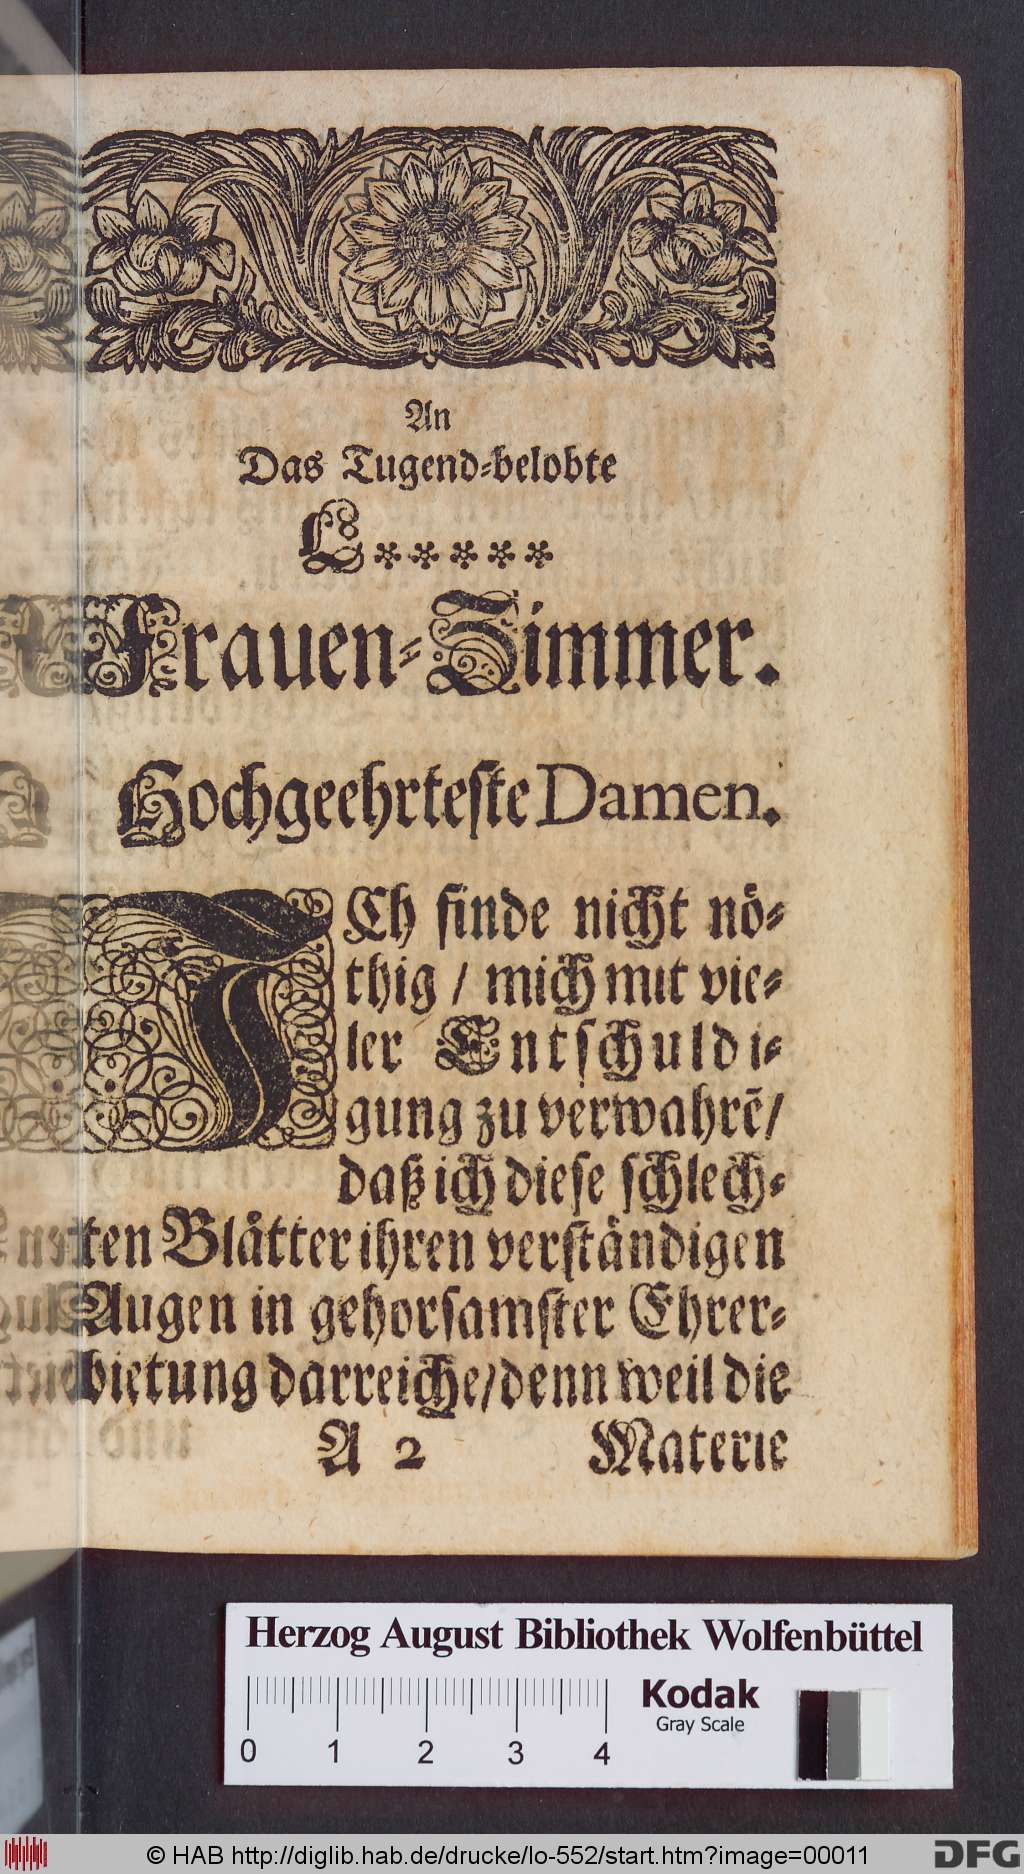 An
Das Tugend-belobte
L*****
Frauen-Zimmer.
Hochgeehrteste Damen.
ICh finde nicht nö-
thig / mich mit vie-
ler Entschuldi-
gung zu verwahrē/
daß ich diese schlech-
ten Blätter ihren verständigen
Augen in gehorsamster Ehrer-
bietung darreiche/denn weil die
A 2 Materie
Herzog August Bibliothek Wolfenbüttel
Kodak
Gray Scale
0 1 2 3 4
© HAB http://diglib.hab.de/drucke/lo-552/start.htm?image=00011
DFG